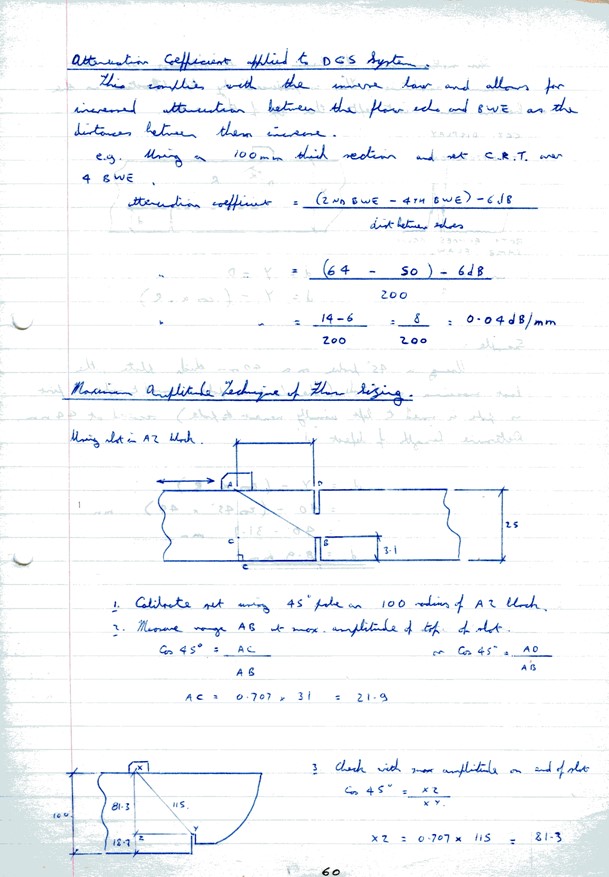 Attenuation Coefficient applied to DGS System.
This complies with the inverse law and allows for
increased attenuation between the flaw echo and BWE as the
distances between them increase.
e.g. Using a 100mm thick section and set C.R.T. over
4 BWE.
attenuation coefficient = (2ND BWE - 4TH BWE) - 6dB
dist between echoes
" = (64 - 50) - 6dB
200
" " = 14-6 = 8 = 0.04dB/mm
200 200
Maximum Amplitude Technique of Flaw Sizing.
Using slot in A2 block.
A D
25
C B
3.1
E
1. Calibrate set using 45° probe on 100 radius of A2 block.
2. Measure range AB at max. amplitude of top of slot.
Cos 45° = AC or Cos 45° = AD
AB AB
AC = 0.707 x 31 = 21.9
3 Check with max amplitude on end of slot
Cos 45° = XZ
XY.
X
100 81.3 115.
Z Y
18.7
XZ = 0.707 x 115 = 81.3
60